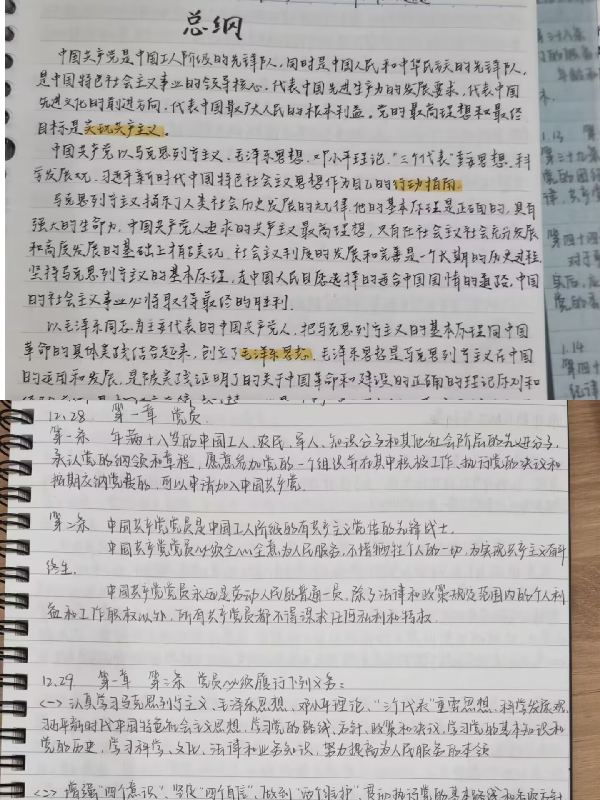 总纲
中国共产党是中国工人阶级的先锋队，同时是中国人民和中华民族的先锋队，
是中国特色社会主义事业的领导核心，代表中国先进生产力的发展要求，代表中国
先进文化的前进方向，代表中国最广大人民的根本利益。党的最高理想和最终
目标是实现共产主义。
中国共产党以马克思列宁主义、毛泽东思想、邓小平理论、“三个代表”重要思想、科
学发展观、习近平新时代中国特色社会主义思想作为自己的行动指南。
马克思列宁主义揭示了人类社会历史发展的规律，他的基本原理是正确的，具有
强大的生命力，中国共产党人追求的共产主义最高理想，只有在社会主义社会充分发展
和高度发展的基础上才能实现。社会主义制度的发展和完善是一个长期的历史过程。
坚持马克思列宁主义的基本原理，走中国人民自愿选择的适合中国国情的道路，中国
的社会主义事业必将取得最终的胜利。
以毛泽东同志为主要代表的中国共产党人，把马克思列宁主义的基本原理同中国
革命的具体实践结合起来，创立了毛泽东思想。毛泽东思想是马克思列宁主义在中国
的运用和发展，是被实践证明了的关于中国革命和建设的正确的理论原则和
1.13
第三十九条
第四十四
对于
党的
1.14
第四十
纪律
12.28 第一章 党员
第一条 年满十八岁的中国工人、农民、军人、知识分子和其他社会阶层的先进分子，
承认党的纲领和章程，愿意参加党的一个组织并在其中积极工作、执行党的决议和
按期交纳党费的，可以申请加入中国共产党。
第二条 中国共产党党员是中国工人阶级的有共产主义觉悟的先锋战士。
中国共产党党员必须全心全意为人民服务，不惜牺牲个人的一切，为实现共产主义奋斗
终生。
中国共产党党员永远是劳动人民的普通一员，除了法律和政策规定范围内的个人利
益和工作职权以外，所有共产党员都不得谋求任何私利和特权。
12.29 第一章 第三条 党员必须履行下列义务：
<一> 认真学习马克思列宁主义、毛泽东思想、邓小平理论、“三个代表”重要思想、科学发展观、
习近平新时代中国特色社会主义思想，学习党的路线、方针、政策和决议，学习党的基本知识和
党的历史，学习科学、文化、法律和业务知识，努力提高为人民服务的本领
<二> 增强“四个意识”、坚定“四个自信”、做到“两个维护”，贯彻执行党的基本路线和各项方针